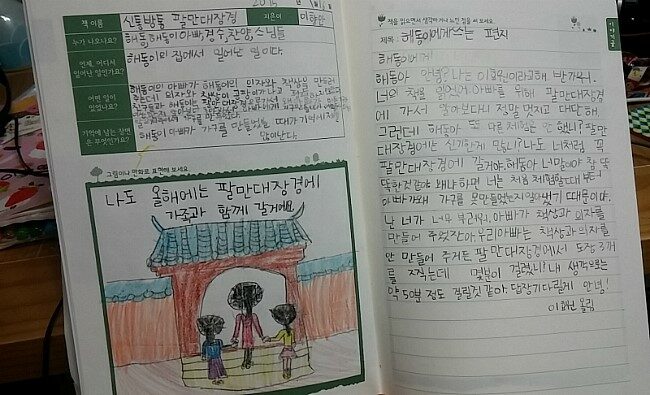 2015
책 이름 신통방통 팔만대장경 지은이
누가 나오나요? 해동, 해동이 아빠, 경수, 찬양, 스님들
언제, 어디서 일어난 일인가요? 해동이의 집에서 일어난 일이다.
어떤 일이 있었나요?
해동이의 아빠가 해동이의 의자와 책상을 만들어
기억에 남는 장면은 무엇인가요?
해동이 아빠가 가구를 만들었을 때가 기억에 제일
많이 난다.
그림이나 만화로 표현해 보세요.
나도 올해에는 팔만대장경에
가족과 함께 갈거에요
책을 읽으면서 생각하거나 느낀 점을 써 보세요.
제목: 해동이에게 쓰는 편지
해동이에게
해동아 안녕? 나는 이라고해. 반가워.
너의 책을 읽었어. 아빠가 팔만대장경
에 가서 알아보다니 정말 멋지고 대단해.
그런데 해동아 또 다른 체험은 안 했니? 팔만
대장경에는 신기한게 많니? 나도 너처럼 꼭
팔만대장경에 갈거야. 해동아 너말이야 참 똑
똑한것 같아. 왜냐하면 너는 처음 체험할때부터
아빠가 왜 가구를 못만들었는지 알아냈기 때문이야.
난 너가 너무 부러워. 아빠가 책상과 의자를
만들어 주었잖아. 우리아빠는 책상과 의자를
안 만들어 주거든. 팔만대장경에서 도장 3개
를 찍는데 몇분이 걸렸니? 내 생각으로는
약 50분 정도 걸릴것 같아. 답장기다릴게 안녕!
올림